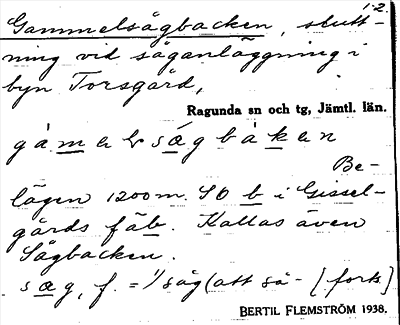 1-2.
Gammelsågbacken, slutt-
ning vid såganläggning i
byn Torsgård,
Ragunda sn och tg, Jämtl. län.
gamelsægbakan
Be-
lägen 1200 m. SO b i Gissel-
gårds fäb. Kallas även
Sågbacken.
sæg, f. = 1/ såg (att så- [forts]
BERTIL FLEMSTRÖM 1938.